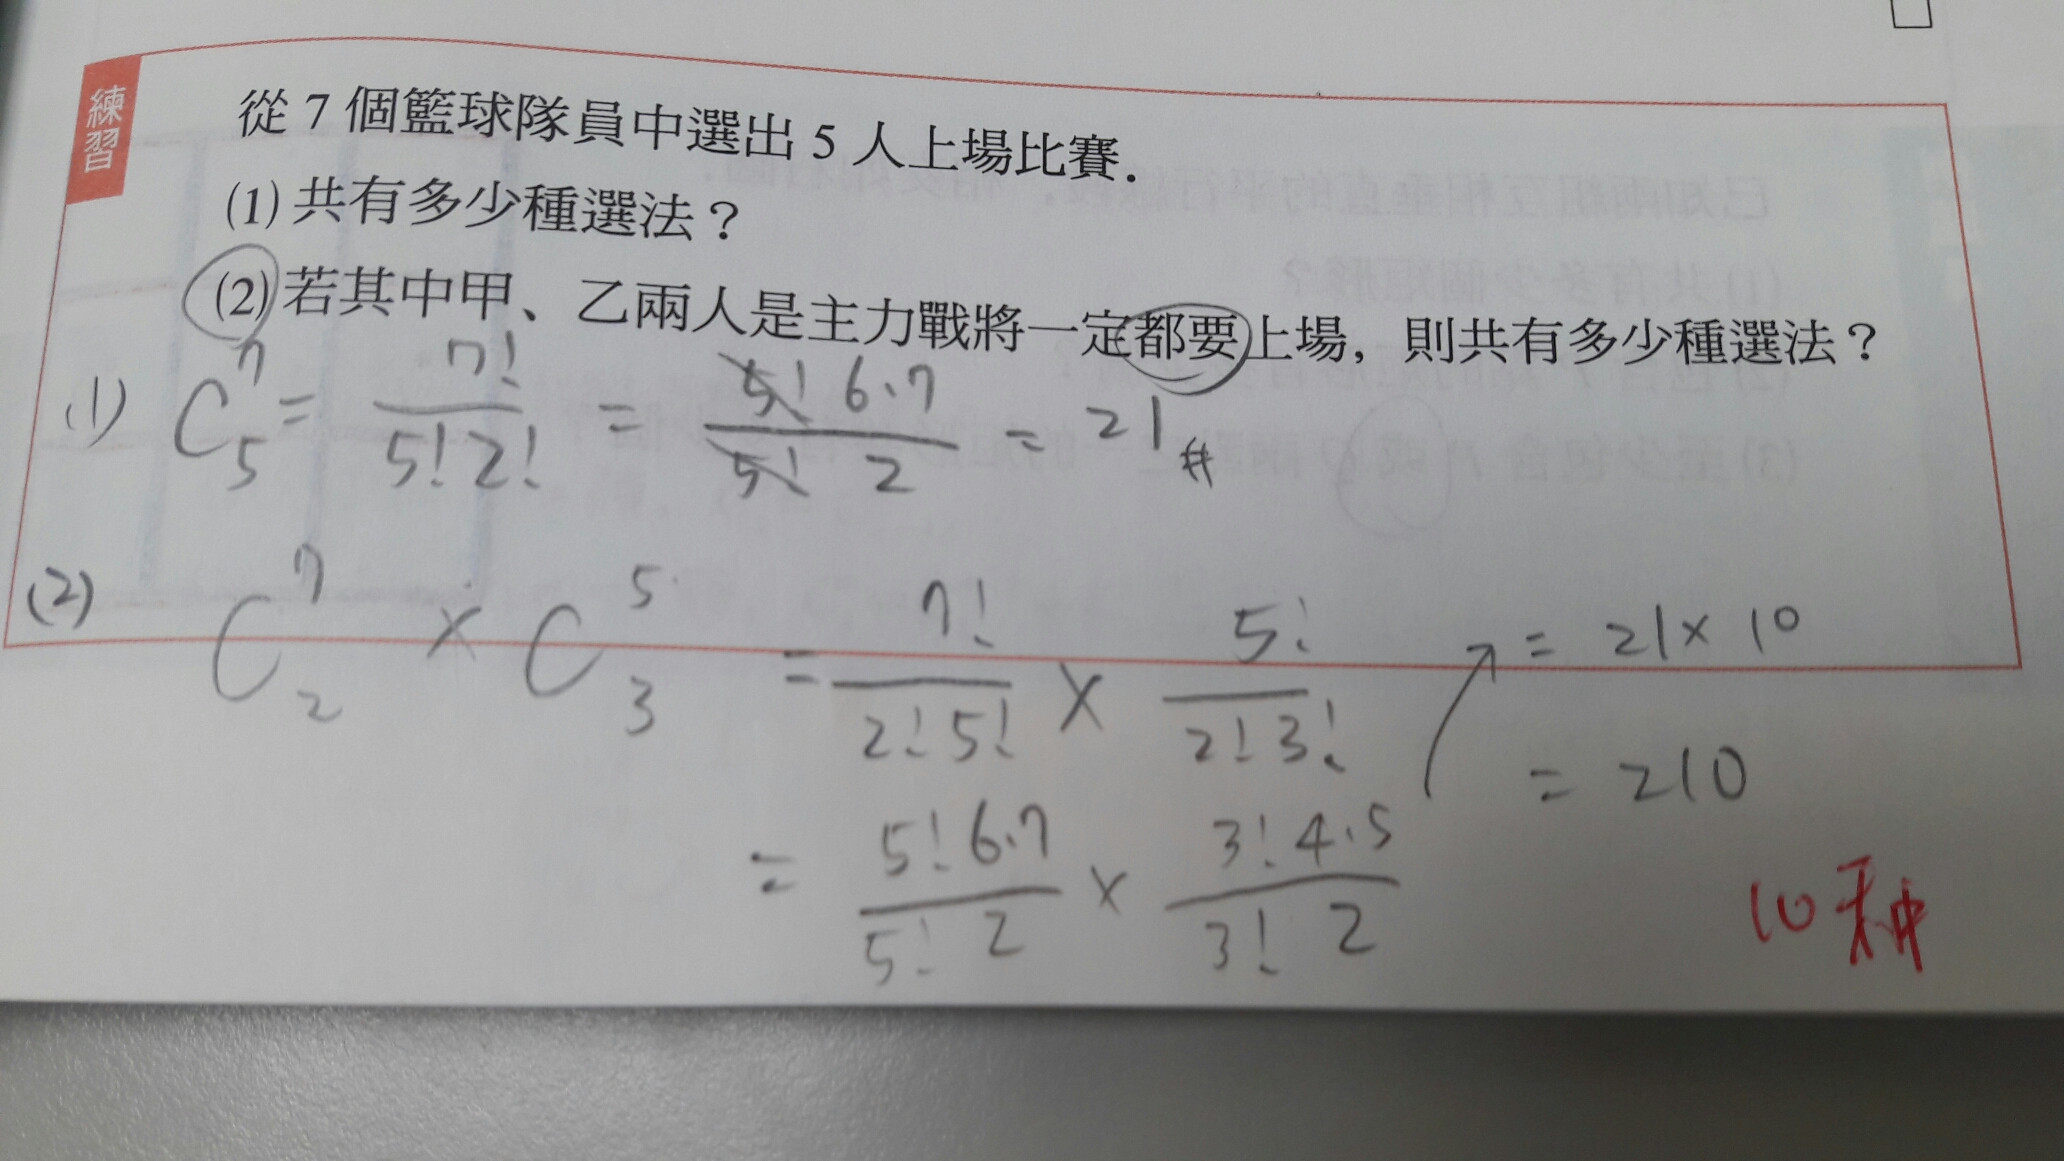 練習
從 7 個籃球隊員中選出 5 人上場比賽.
(1) 共有多少種選法？
(2) 若其中甲、乙兩人是主力戰將一定都要上場，則共有多少種選法？
(1) C⁷₅ = 7!/5!2! = 5!6·7/5!2 = 21 #
(2) C⁷₂ × C⁵₃ = 7!/2!5! × 5!/2!3!
= 5!6·7/5!2 × 3!4·5/3!2
= 21×10
= 210
10种